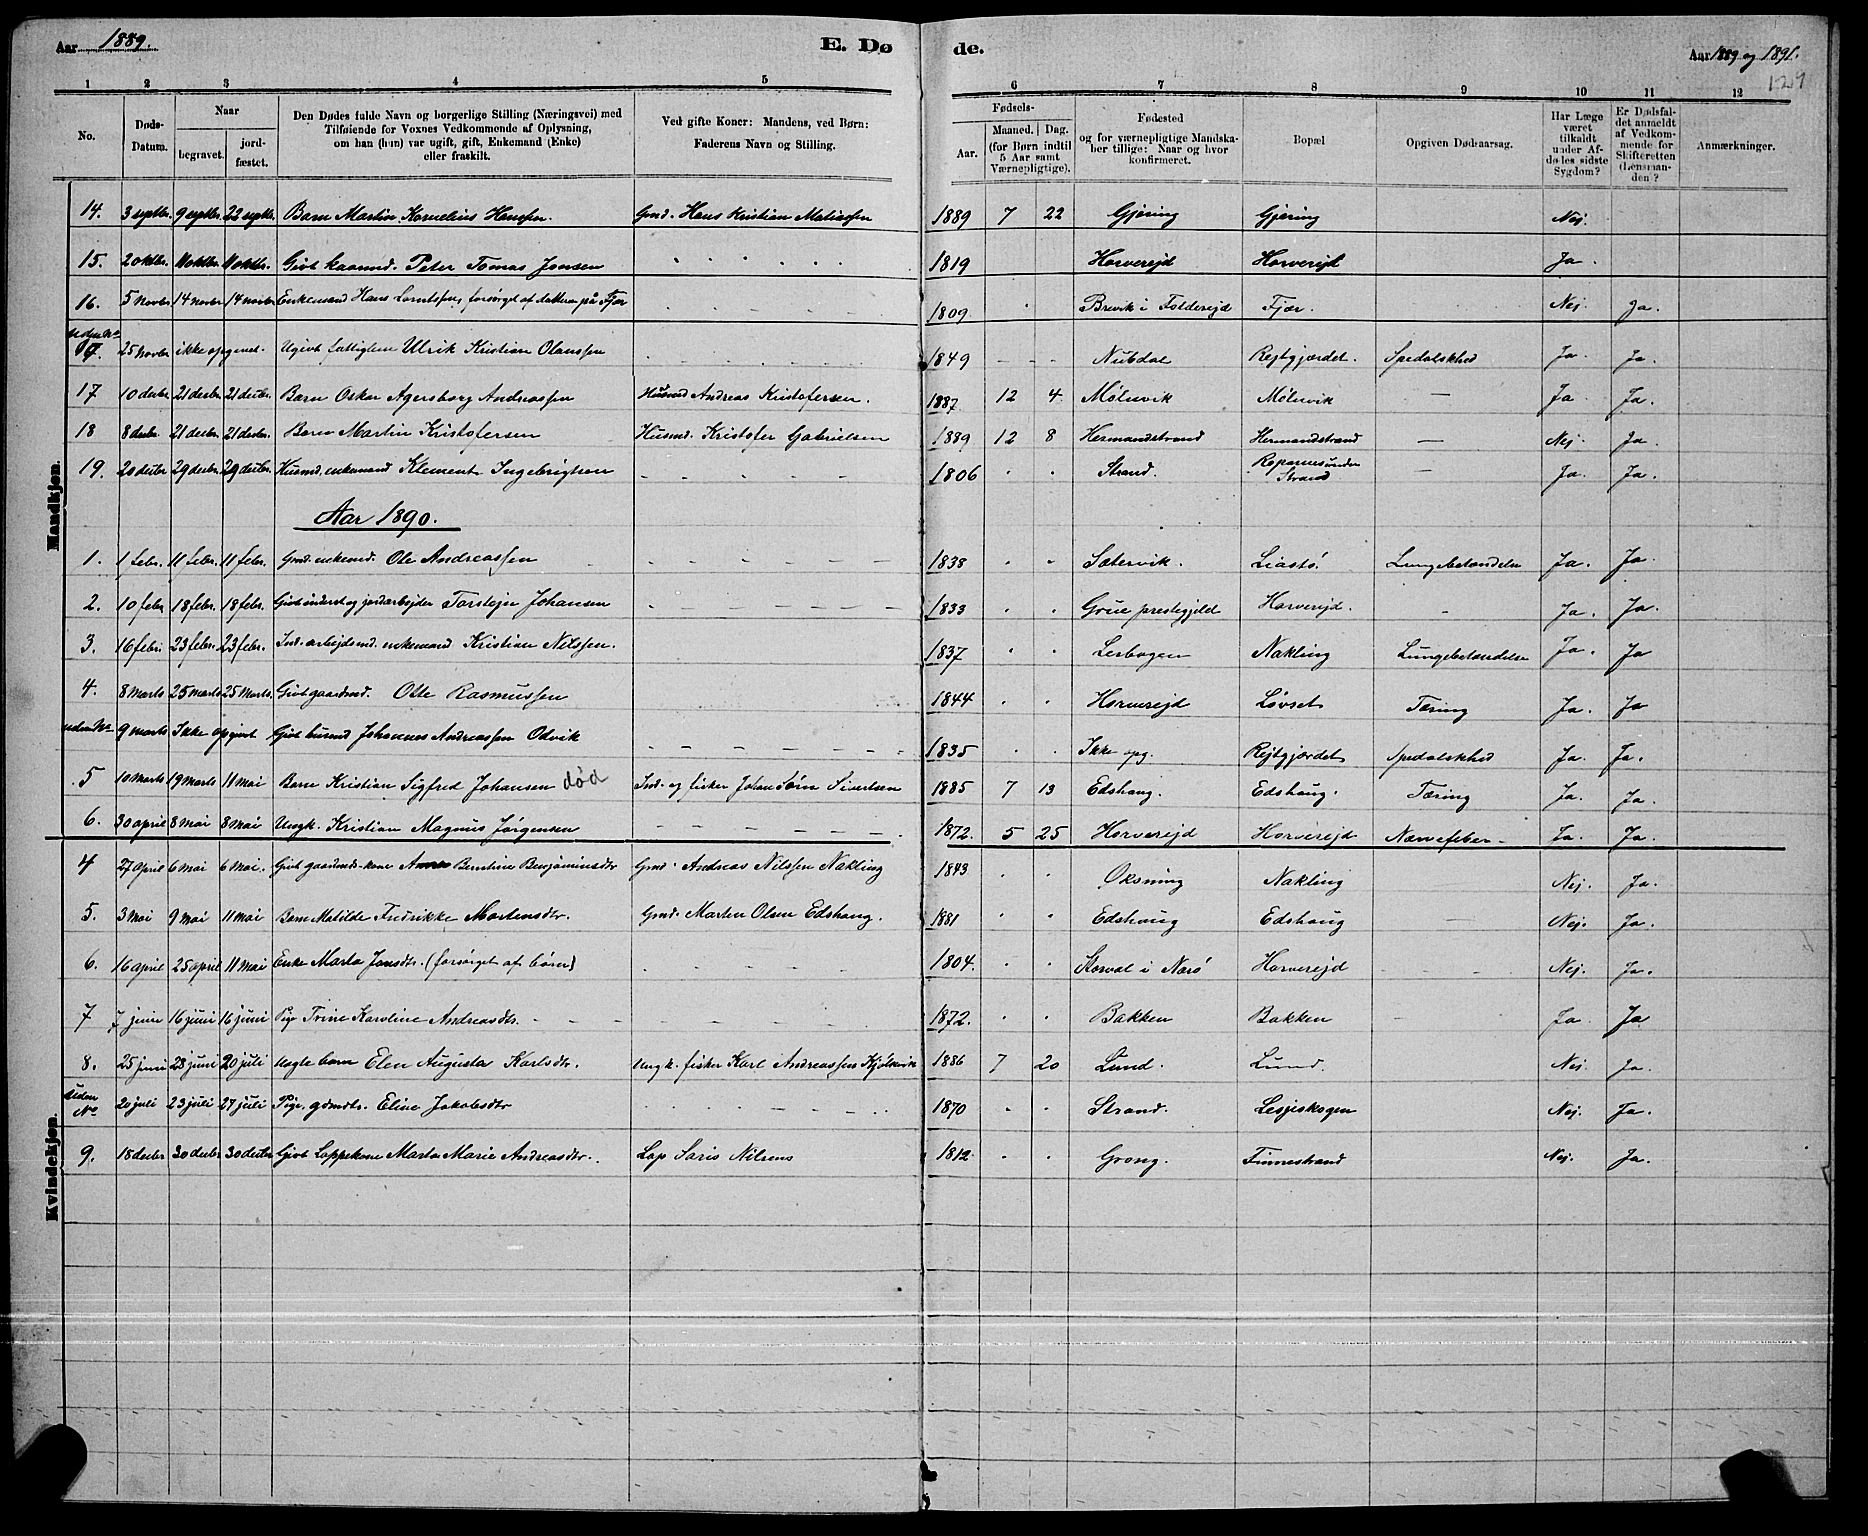 Aar 1889. E. Dø de. Aar 1889 og 1891.
127
1 2 3 4 5 6 7 8 9 10 11 12
No. Døds-Datum. Naar begravet. jord-fæstet. Den Dødes fulde Navn og borgerlige Stilling (Næringsvei) med Tilføiende for Voxnes Vedkommende af Oplysning, om han (hun) var ugift, gift, Enkemand (Enke) eller fraskilt. Ved gifte Koner: Mandens, ved Børn: Faderens Navn og Stilling. Fødsels- Aar. Maaned. Dag. (for Børn indtil 5 Aar samt Værnepligtige). Fødested og for værnepligtige Mandskaber tillige: Naar og hvor konfirmeret. Bopæl. Opgiven Dødsaarsag. Har Læge været tilkaldt under Afdødes sidste Sygdom? Er Dødsfaldet anmeldt af Vedkommende for Skifteretten (Lensmanden)? Anmærkninger.
Mandkjøn.
14. 3 septbr. 9 septbr. 22 septbr. Barn Martin Kornelius Hansen. Gmd. Hans Kristian Matiassen 1889 7 22 Gjøring Gjøring Nej.
15. 2 oktbr. 11 oktbr. 11 oktbr. Givt kaarmd. Peter Tomas Jonsen 1819 Horverejd Horverejd Ja.
16. 5 novbr 14 novbr 14 novbr. Enkemand Hans Lorntsen, forsørget af datteren på Fjær 1809 Brevik i Folderejd Fjær. Nej. Ja.
uden No 25 novbr ikke opgivet. Ugivt fattiglem Ulrik Kristian Olaussen 1849 Nubdal Rejtgjærdet. Spedalskhed Ja. Ja.
17 10 decbr. 21 decbr. 21 decbr. Barn Oskar Agersborg Andreassen Husmd Andreas Kristofersen. 1887 12 4 Mølnvik Mølnvik — Ja. Ja.
18 8 decbr. 21 decbr. 21 decbr. Barn Martin Kristofersen Husmd. Kristofer Gabrielsen 1889 12 8 Hermandstrand Hermandstrand — Nej. Ja.
19. 20 decbr 29 decbr. 29 decbr. Husmd. enkemand Klement Ingebrigtsen 1806 Strand. Strand — Ja. Ja.
Aar 1890.
1. 1 febr. 11 febr. 11 febr. Gmd. enkemd. Ole Andreassen 1838 Sætervik. Liastø. Lungebetændelse Ja. Ja.
2. 10 febr 18 febr. 18 febr. Givt inderst og jordarbejder Torstejn Johansen 1833 Grue prestegjeld Horverejd. Ja. Ja.
3. 16 febr. 23 febr. 23 febr. Ind. arbejdsmd. enkemand Kristian Nilssen. 1837 Lerbogen Nakling Lungebetændelse Ja. Ja
4. 8 marts 25 marts 25 marts. Givt gaardmd. Otte Rasmussen 1844 Horverejd Løvset Tæring Ja. Ja
uden No 9 marts Ikke opgivt Givt husmd Johannes Andreassen Odvik 1835 Ikke opg. Rejtgjærdet Spedalskhed Ja. Ja.
5 10 marts 19 marts 11 mai Barn Kristian Sigfred Johansen død Ind. og fisker Johan Sørn Sivertsen 1885 7 13 Edshaug. Edshaug. Tæring Ja. Ja.
6. 30 april 8 mai 8 mai Ungk. Kristian Magnus Jørgensen 1872. 5 25 Horverejd Horverejd Nervefeber Ja. Ja.
Kvindekjøn.
4 27 april 6 mai 6 mai. Givt gaardmds-kone Anne Berntine Benjaminsdtr Gmd. Andreas Nilssen Nakling 1843 Oksning Nakling Nej. Ja.
5. 3 mai 9 mai 11 mai Barn Matilde Fredrikke Mortensdtr. Gmd. Morten Olsen Edshaug. 1881 Edshaug Edshaug Nej. Ja.
6. 16 april 25 april 11 mai Enke Marta Jonsdtr. (forsørget af børn) 1804. Storval i Nærø Horverejd Nej. Ja.
7 7 juni 16 juni 16 juni Pige Trine Karoline Andreasdtr. 1872. Bakken Bakken Ja. Ja
8. 25 juni 28 juni 20 juli Uægte barn Elen Augusta Karlsdtr. Ungk. fisker Karl Andreassen Kjølsvik 1886 7 20 Lund. Lund. Nej. Ja.
Uden No 20 juli 23 juli 27 juli Pige, gdmdtr. Eline Jakobsdtr 1870 Strand. Lesjeskogen Nej. Ja.
9. 18 decbr 30 decbr 30 decbr Givt Lappekone Marta Marie Andreasdtr. Lap Saris Nilsens 1812 Grong. Finnestrand Nej. Ja.